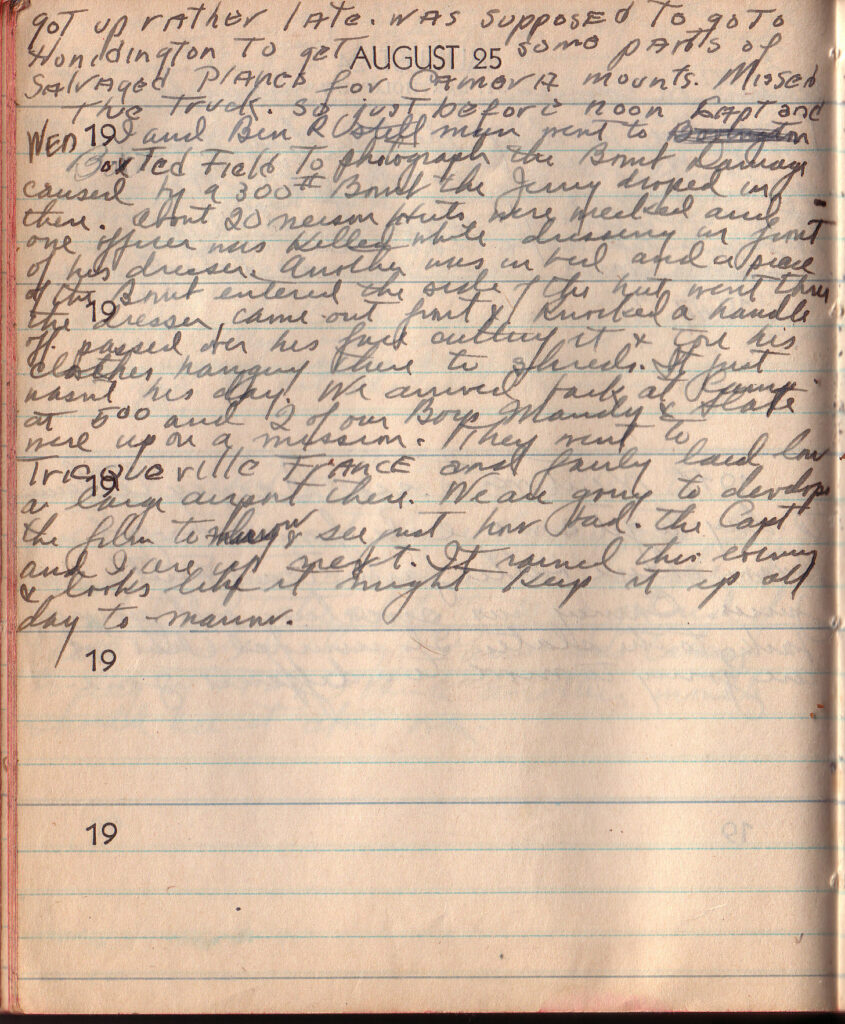 got up rather late. was supposed to go to
Honidington to get some parts of
AUGUST 25
Salvaged Planes for Camera mounts. Missed
The Truck. So just before noon Capt and
WED 19 I and Ben R still man went to
Boxted Field To photograph the Bomb Damage
caused by a 300# Bomb the Jerry droped in
there. About 20 neison Huts were wecked and
one officer was killed while dressing in front
of his dresser. Another was in bed and a piece
of the Bomb entered the side of the hut went thru
19
the dresser came out front & knocked a handle
off passed over his face cutting it & tore his
clothes hanging there to shreds. It just
wasnt his day. We arrived back at
at 500 and 2 of our Boys Mandy & Slate
were up on a mission. They went to
Tricqueville France and fairly laid low
19
a large airport there. We are going to develope
the film to & see just how bad. the Capt
and I are up next. It rained this evening
& looks like it might keep it up all
day to-morrow.
19
19